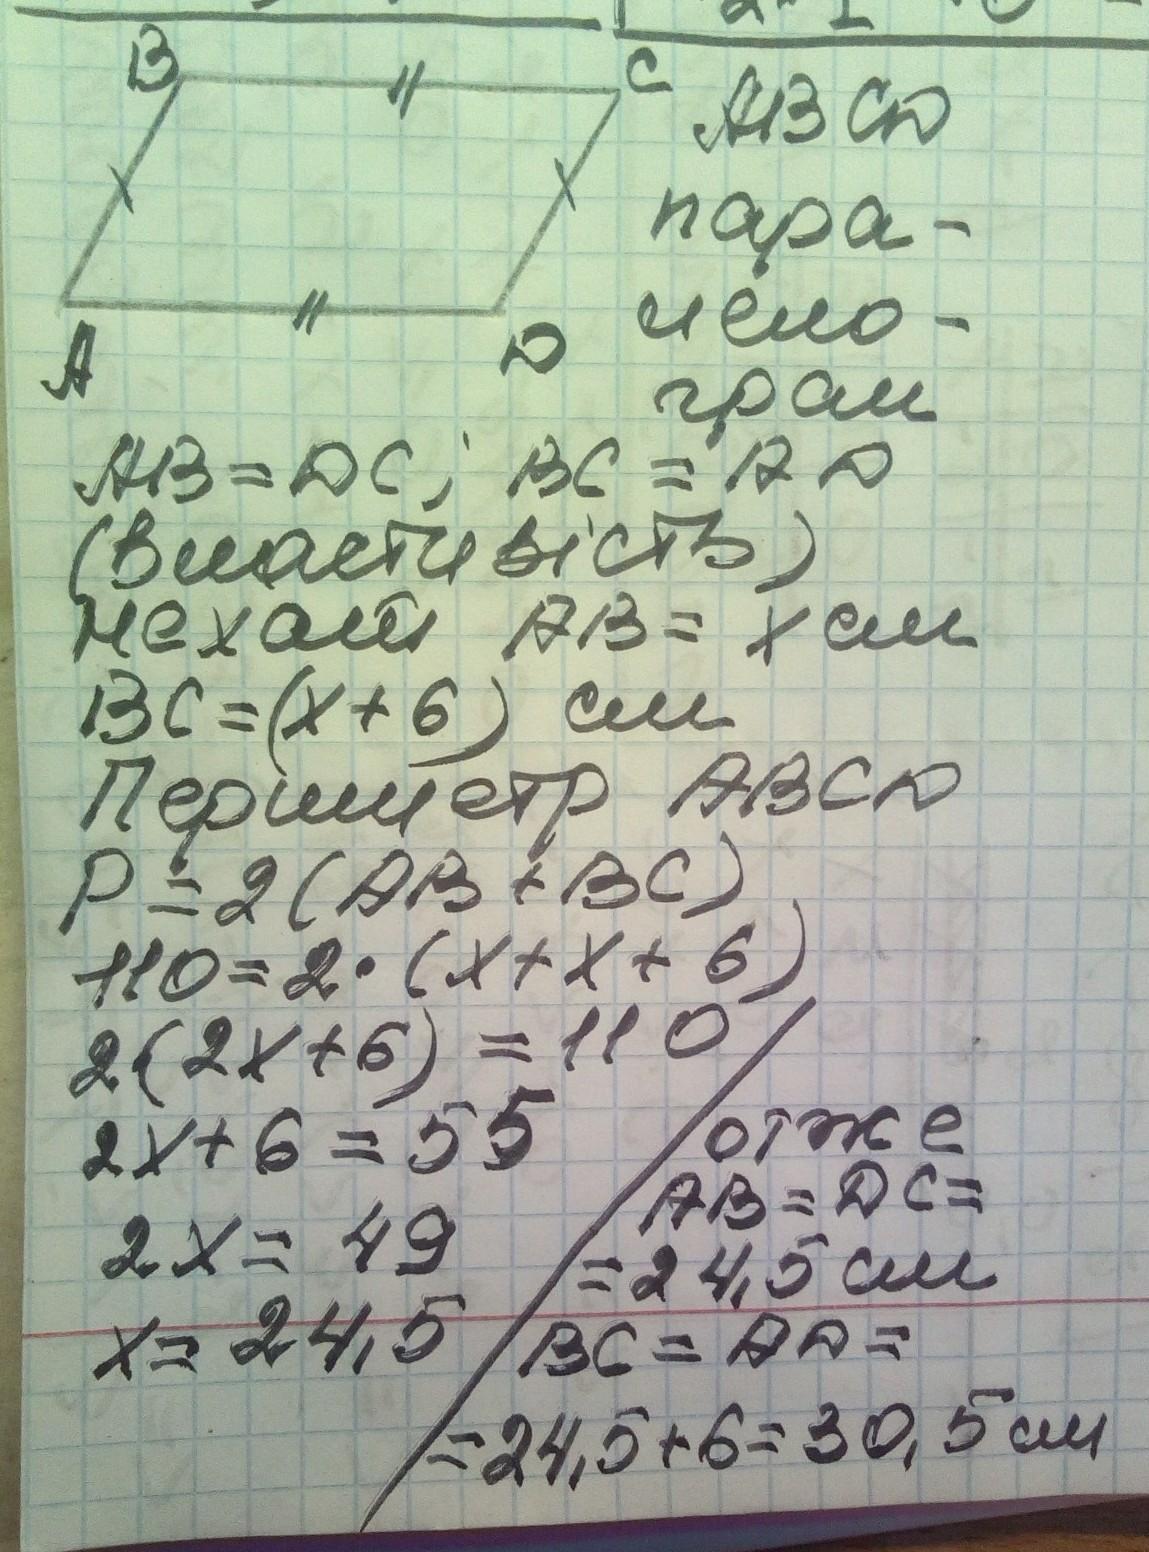 B C
A D
ABCD
пара-
лело-
грам
AB = DC; BC = AD
(властивість)
Нехай AB = x см
BC = (x + 6) см
Периметр ABCD
P = 2(AB + BC)
110 = 2 · (x + x + 6)
2(2x + 6) = 110
2x + 6 = 55
2x = 49
x = 24,5
отже
AB = DC =
= 24,5 см
BC = AD =
= 24,5 + 6 = 30,5 см